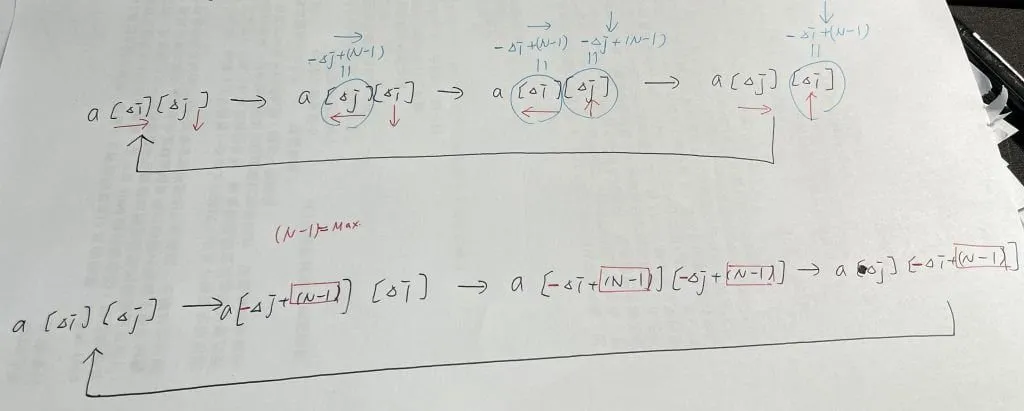 -Δj+(N-1) -Δi+(N-1) -Δj+(N-1) -Δi+(N-1)
a [Δi][Δj] → a [Δj][Δi] → a [Δi][Δj] → a [Δj] [Δi]
(N-1)=Max.
a [Δi][Δj] → a[-Δj+(N-1)] [Δi] → a [-Δi+(N-1)][-Δj+(N-1)] → a [Δj] [-Δi+(N-1)]